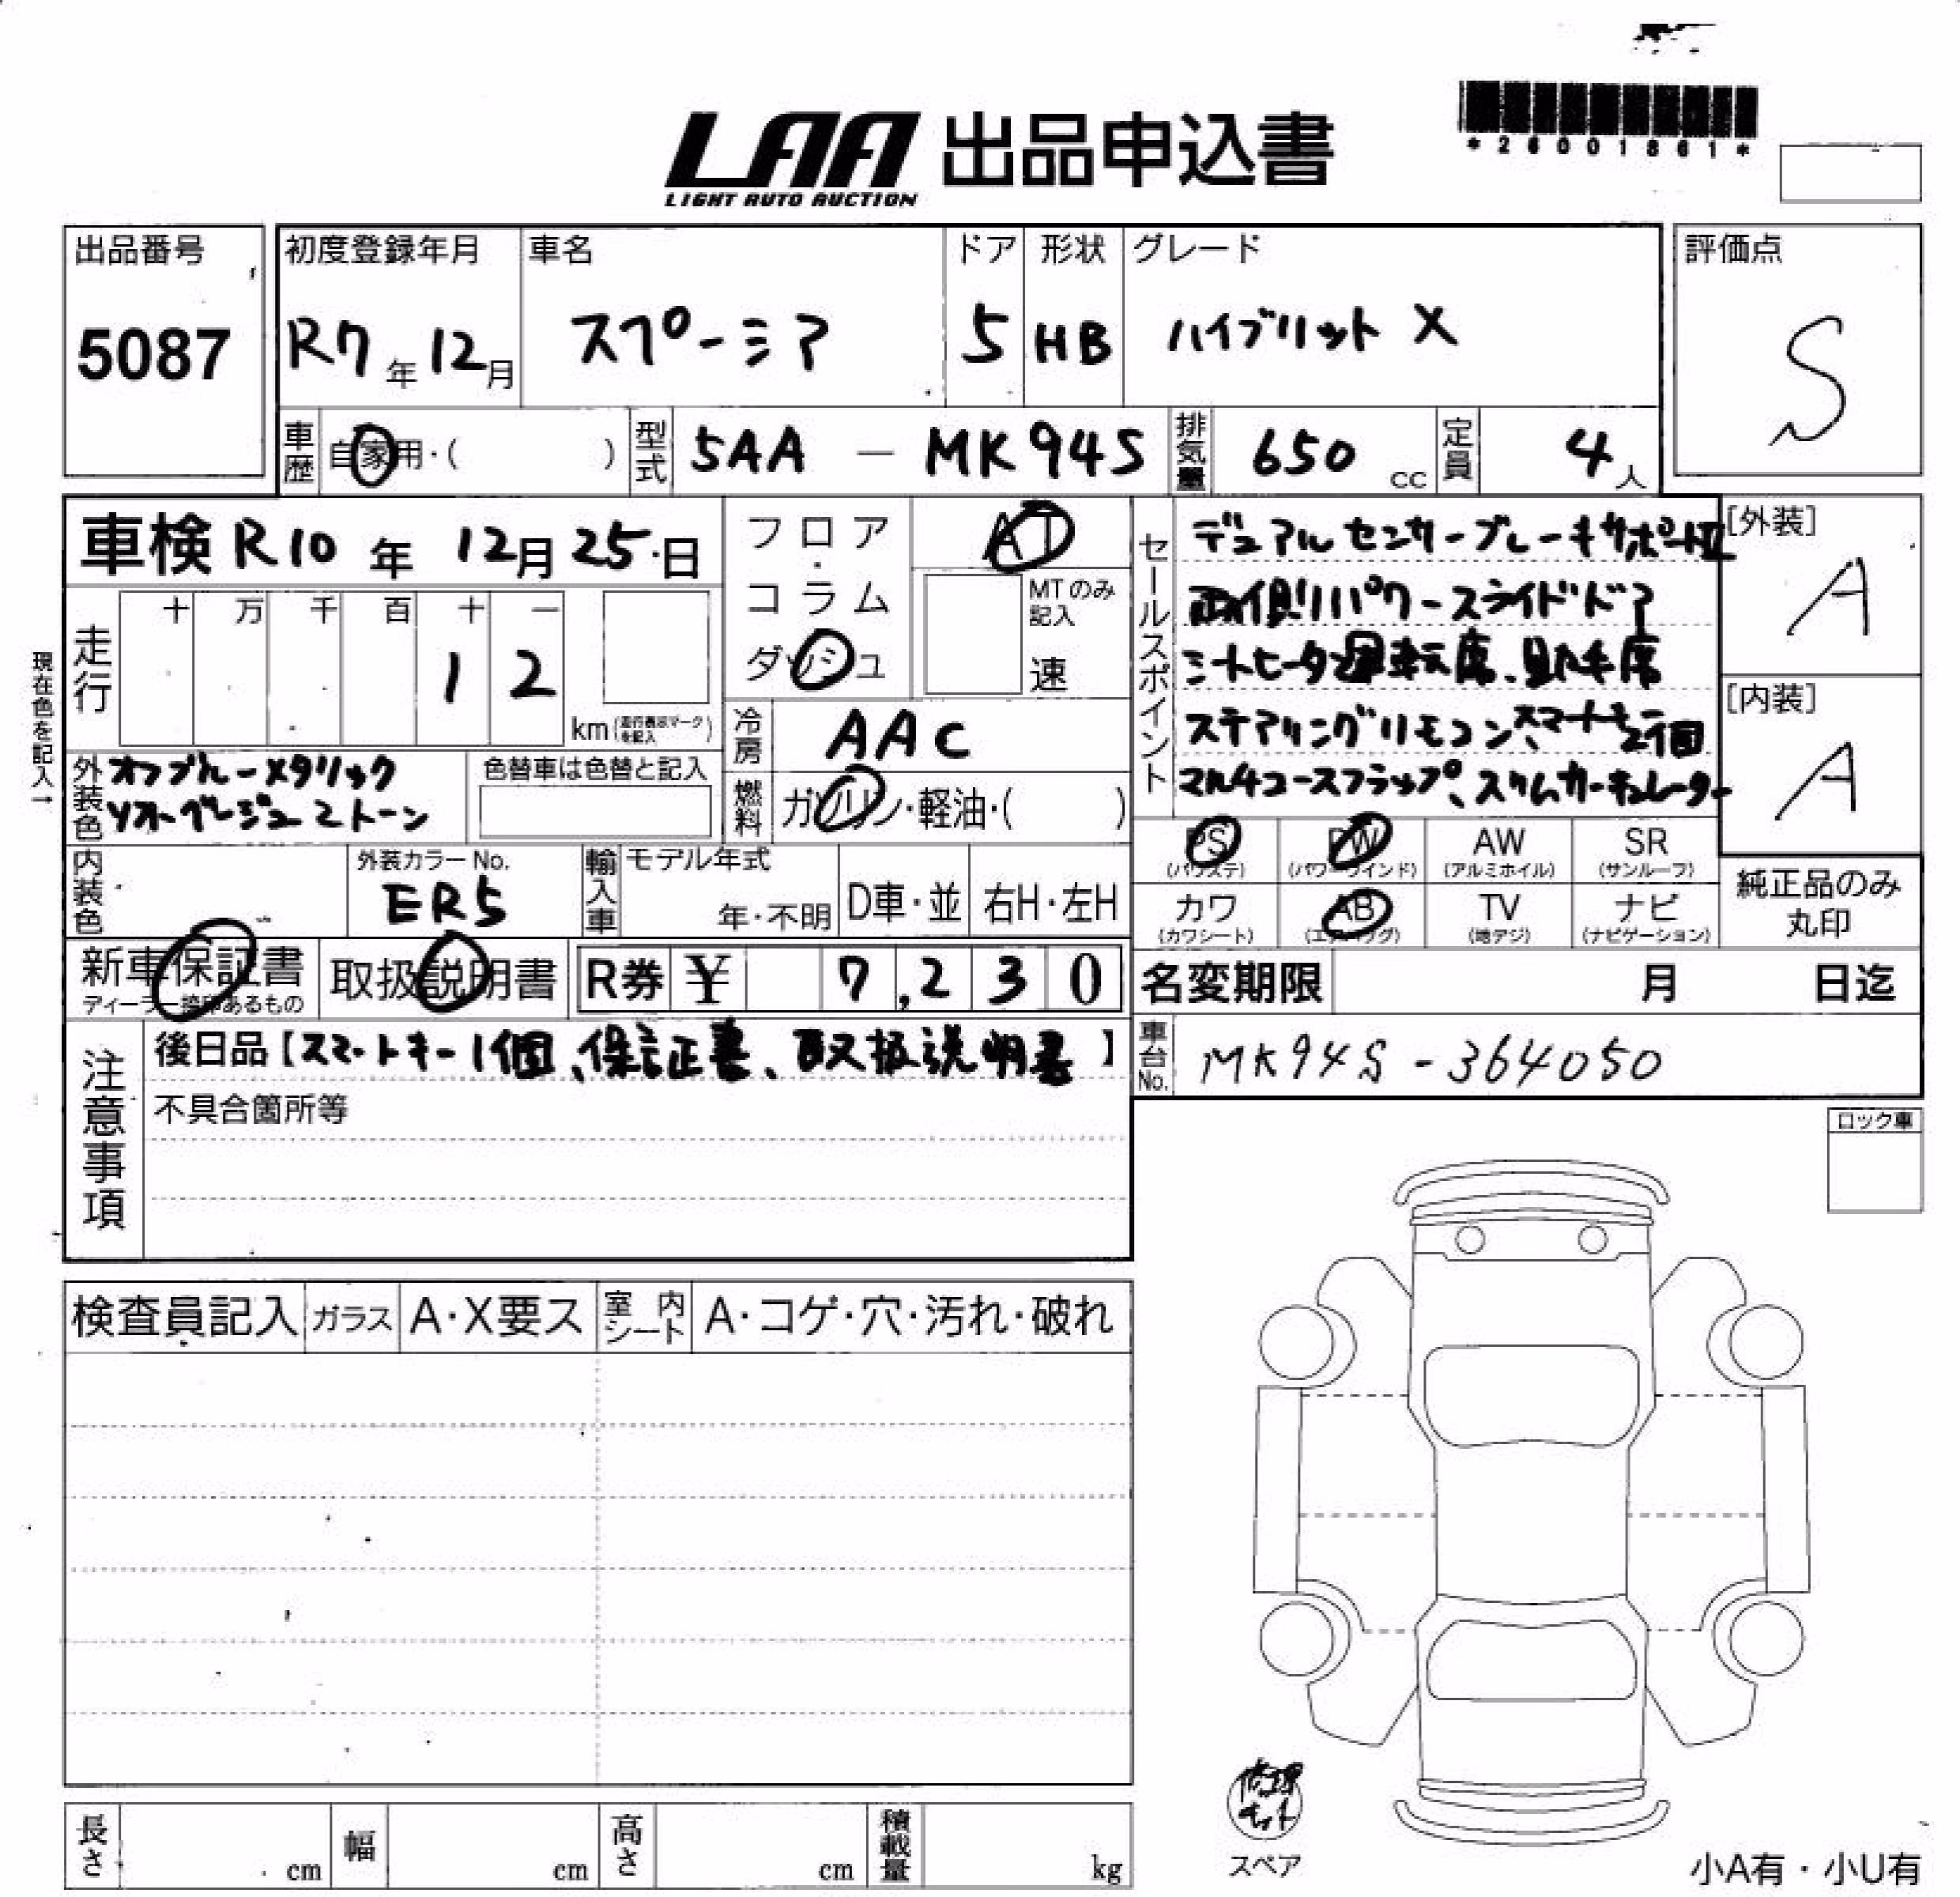 LAA 出品申込書
LIGHT AUTO AUCTION
*26001861*
出品番号
5087
初度登録年月
R7年12月
車名
スペーシア
ドア
5
形状
HB
グレード
ハイブリット X
評価点
S
車歴
自家用・( )
型式
5AA - MK94S
排気量
650 cc
定員
4人
車検 R10年 12月25日
フロア・コラム
ダッシュ
AT
MTのみ記入
速
走行
十 万 千 百 十 一
1 2
km (走行表示マークを記入)
現在色を記入→
冷房
AAC
燃料
ガソリン・軽油・( )
外装色
オフブルーメタリック
ソフトベージュ 2トーン
色替車は色替と記入
セールスポイント
デュアルセンサーブレーキサポートII
両側パワースライドドア
シートヒーター運転席、助手席
ステアリングリモコン、スマートキー2個
マルチユースフラップ、スリムサーキュレーター
[外装]
A
[内装]
A
PS
(パワステ)
PW
(パワーウインド)
AW
(アルミホイル)
SR
(サンルーフ)
カワ
(カワシート)
AB
(エアバッグ)
TV
(地デジ)
ナビ
(ナビゲーション)
純正品のみ
丸印
内装色
外装カラーNo.
ER5
輸入車
モデル年式
年・不明
D車・並
右H・左H
新車保証書
ディーラー捺印あるもの
取扱説明書
R券 ¥ 7,230
名変期限 月 日迄
車台No.
MK94S-364050
注意事項
後日品【スマートキー1個、保証書、取扱説明書】
不具合箇所等
ロック車
検査員記入
ガラス
A・X要ス
室内シート
A・コゲ・穴・汚れ・破れ
長さ cm
幅 cm
高さ cm
積載量 kg
修理キット
スペア
小A有・小U有